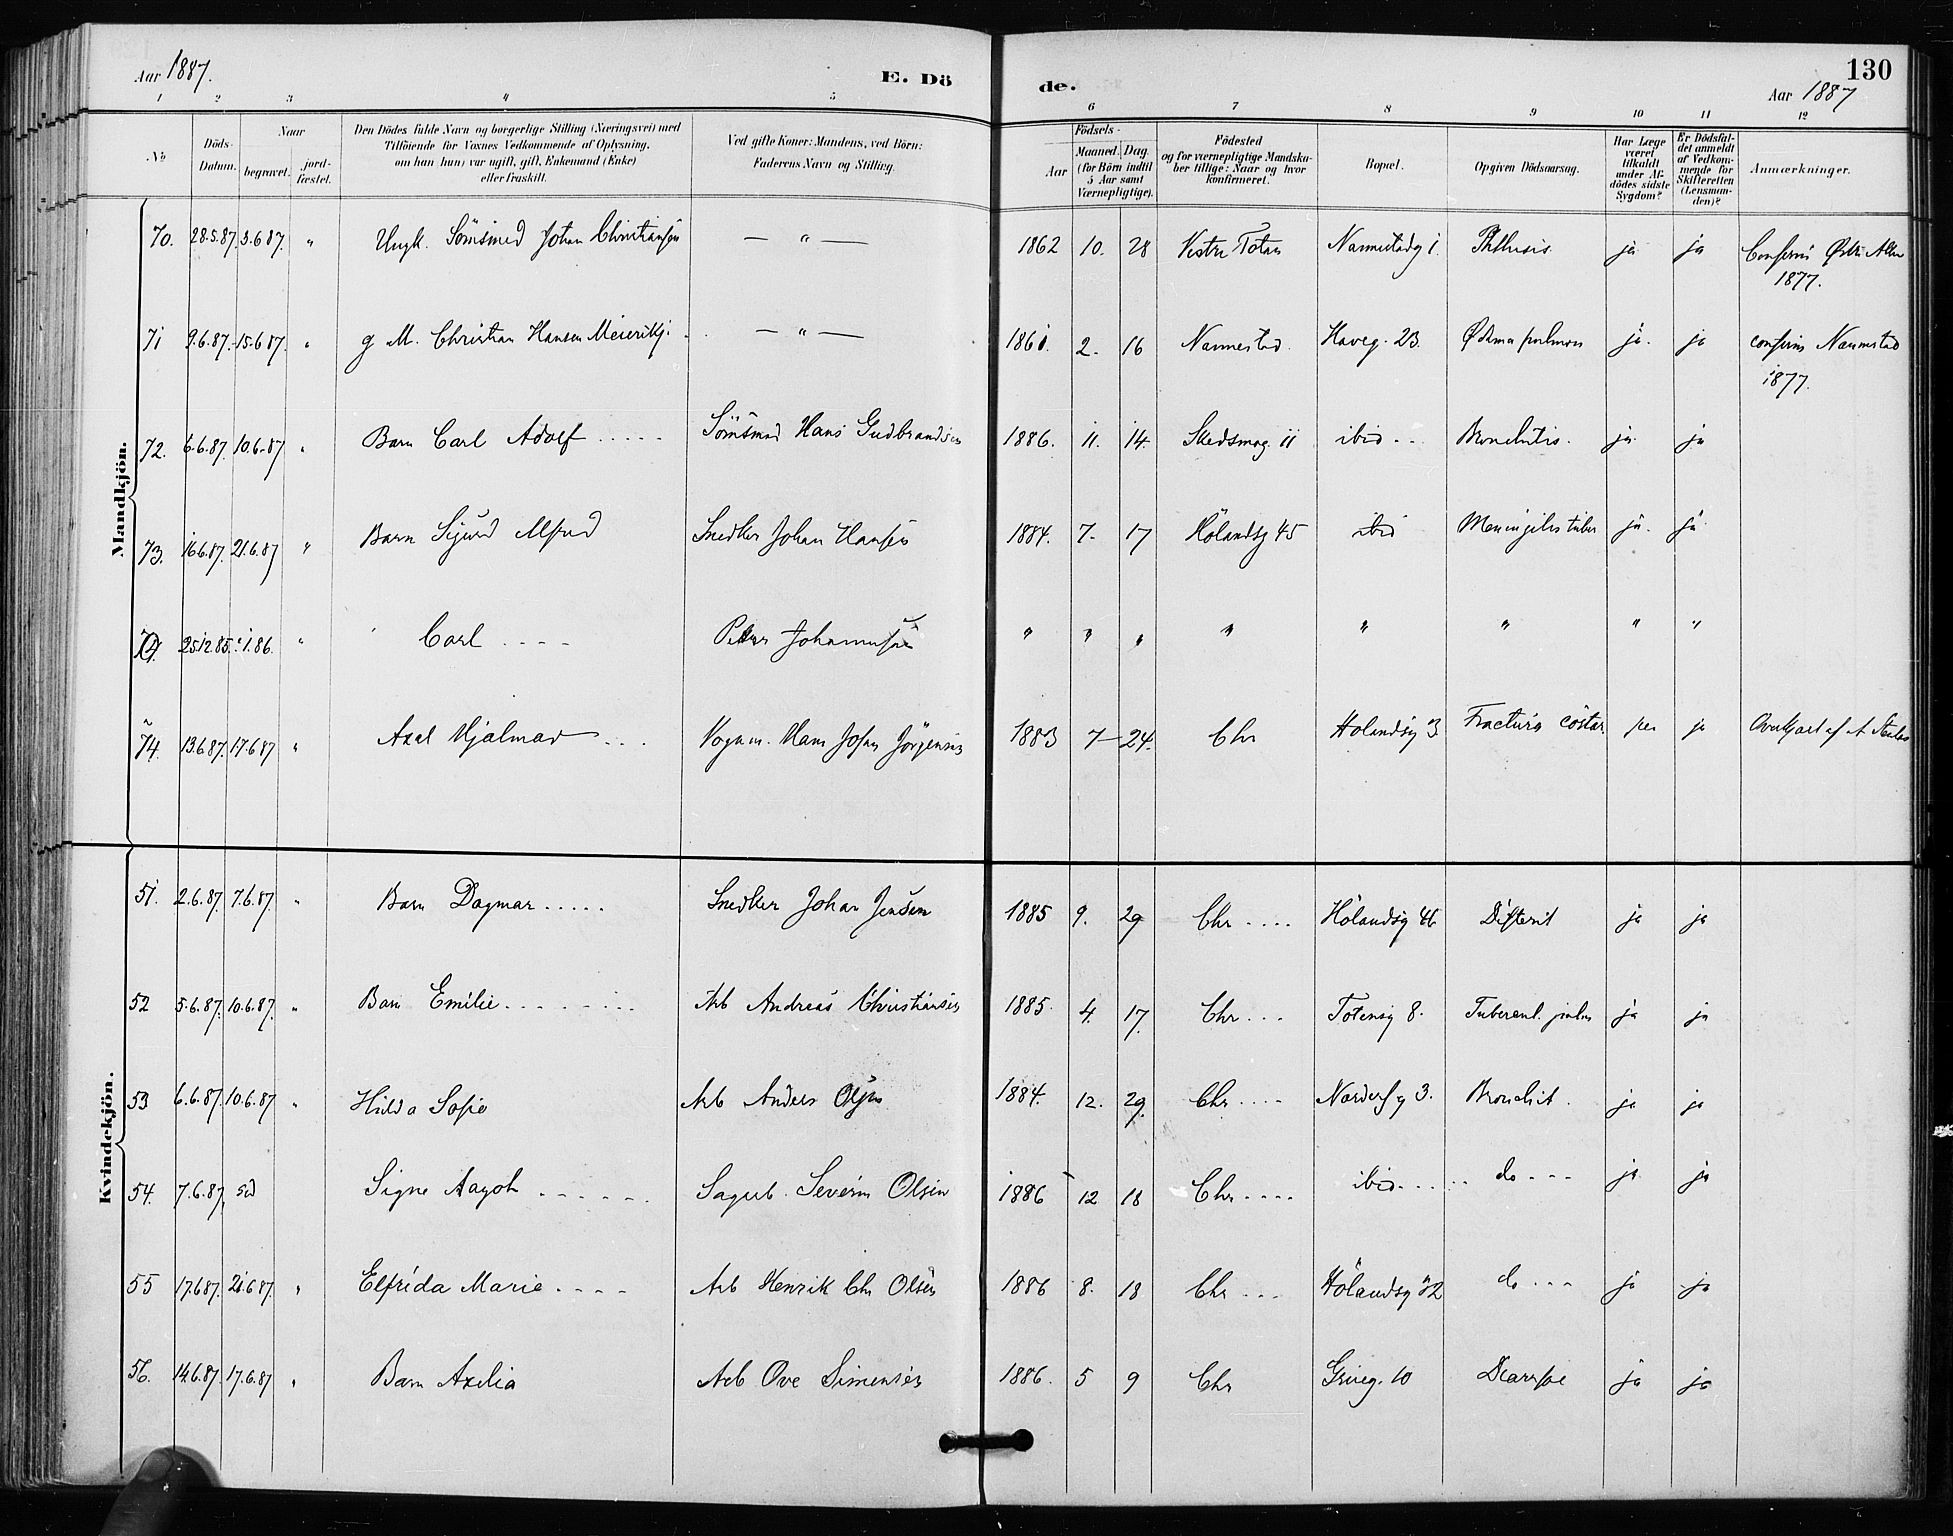 Aar 1887.
E. Dö
de.
130
Aar 1887
1 2 3 4 5 6 7 8 9 10 11 12
No
Döds-Datum.
Naar
begravet.
jord-fæstet.
Den Dödes fulde Navn og borgerlige Stilling (Næringsvei) med
Tilföiende for Voxnes Vedkommende af Oplysning,
om han (hun) var ugift, gift, Enkemand (Enke)
eller fraskilt.
Ved gifte Koner: Mandens, ved Börn:
Faderens Navn og Stilling.
Födsels-
Aar
Maaned. Dag
(for Börn indtil
5 Aar samt
Værnepligtige).
Födested
og for værnepligtige Mandska-
ber tillige: Naar og hvor
konfirmeret.
Bopæl.
Opgiven Dödsaarsag.
Har Læge
været
tilkaldt
under Af-
dödes sidste
Sygdom?
Er Dödsfal-
det anmeldt
af Vedkom-
mende for
Skifteretten
(Lensman-
den)?
Anmærkninger.
Mandkjön.
70. 28.5.87. 3.6 87. " Ungk. Sömsmed Johan Christiansen — " — 1862 10. 28 Vestre Toten Nannestadg 1. Phthisis ja ja Confirm Østre Aker
1877.
71 9.6.87. 15.6 87. " g M. Christian Hansen Meierikj. — " — 1861. 2. 16 Nannestad. Haveg. 23. Ødema pulmon ja. ja confirm Nannestad
1877.
72. 6.6.87. 10.6.87 " Barn Carl Adolf ..... Sömsmed Hans Gudbrandsen 1886. 11. 14. Skedsmog. 11 ibid -- Bronchitis. ja. ja
73. 16.6.87. 21.6.87 " Barn Sigurd Alfred Snedker Johan Hansen 1884. 7. 17 Hölandsg 45 ibid Meningitis tuber ja. ja
74. 25.12.85. 1.86. " Carl ---- Peter Johannesen " " " " " " " "
74. 13.6 87. 17.6 87 " Axel Hjalmar ... Vognm. Hans Johan Jörgensen 1883 7 — 24. Chr Hölandsg 3 Fractura costar. ja Overkjørt af
Kvindekjön.
51. 2.6.87. 7.6.87. " Barn Dagmar ..... Snedker Johan Jensen 1885 9. 29 Chr .... Hölandsg 46 Difterit ja ja
52 5.6.87. 10.6.87. " Barn Emilie ........ Arb Andreas Christiansen 1885. 4. 17. Chr ... Totensg 8. Tubercul. pulm ja ja
53 6.6.87. 10.6.87 " Hilda Sofie Arb Anders Olsen 1884. 12. 29. Chr .... g 3. Bronchit. ja ja
54. 7.6.87. Signe Aagot ...... Severin Olsen 1886 12 18 Chr .... ibid ..... do --- ja. ja
55 17.6 87. 21.6 87. " Elfrida Marie .... Arb Henrik Chr Olsen 1886 8. 18 Chr ... Hölandsg 32 do --- ja ja
56. 14.6.87. 17.6.87 " Barn Axelia Arb Ove Simensen 1886. 5 9 Chr Grüneg. 10 Diarrhoe ja ja